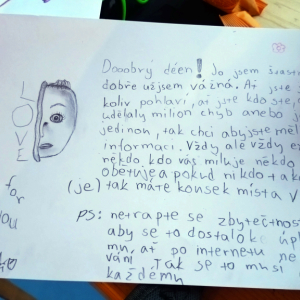 Dooobrý déen! Jo jsem šťast
dobře už jsem vážná. Ať jste
koliv pohlaví, ať jste kdo ste,
udělaly milion chyb anebo j
jedinou, tak chci abyste měl
informaci. Vždy, ale vždy e
někdo, kdo vás miluje někdo
obětuje a pokud nikdo tak
(je) tak máte konsek místa v
PS: netrapte se zbytečnost
aby se to dostalo úpl
mu, ať po internetu ne
vání. Tak se to musí
každému
LOVE
for
you